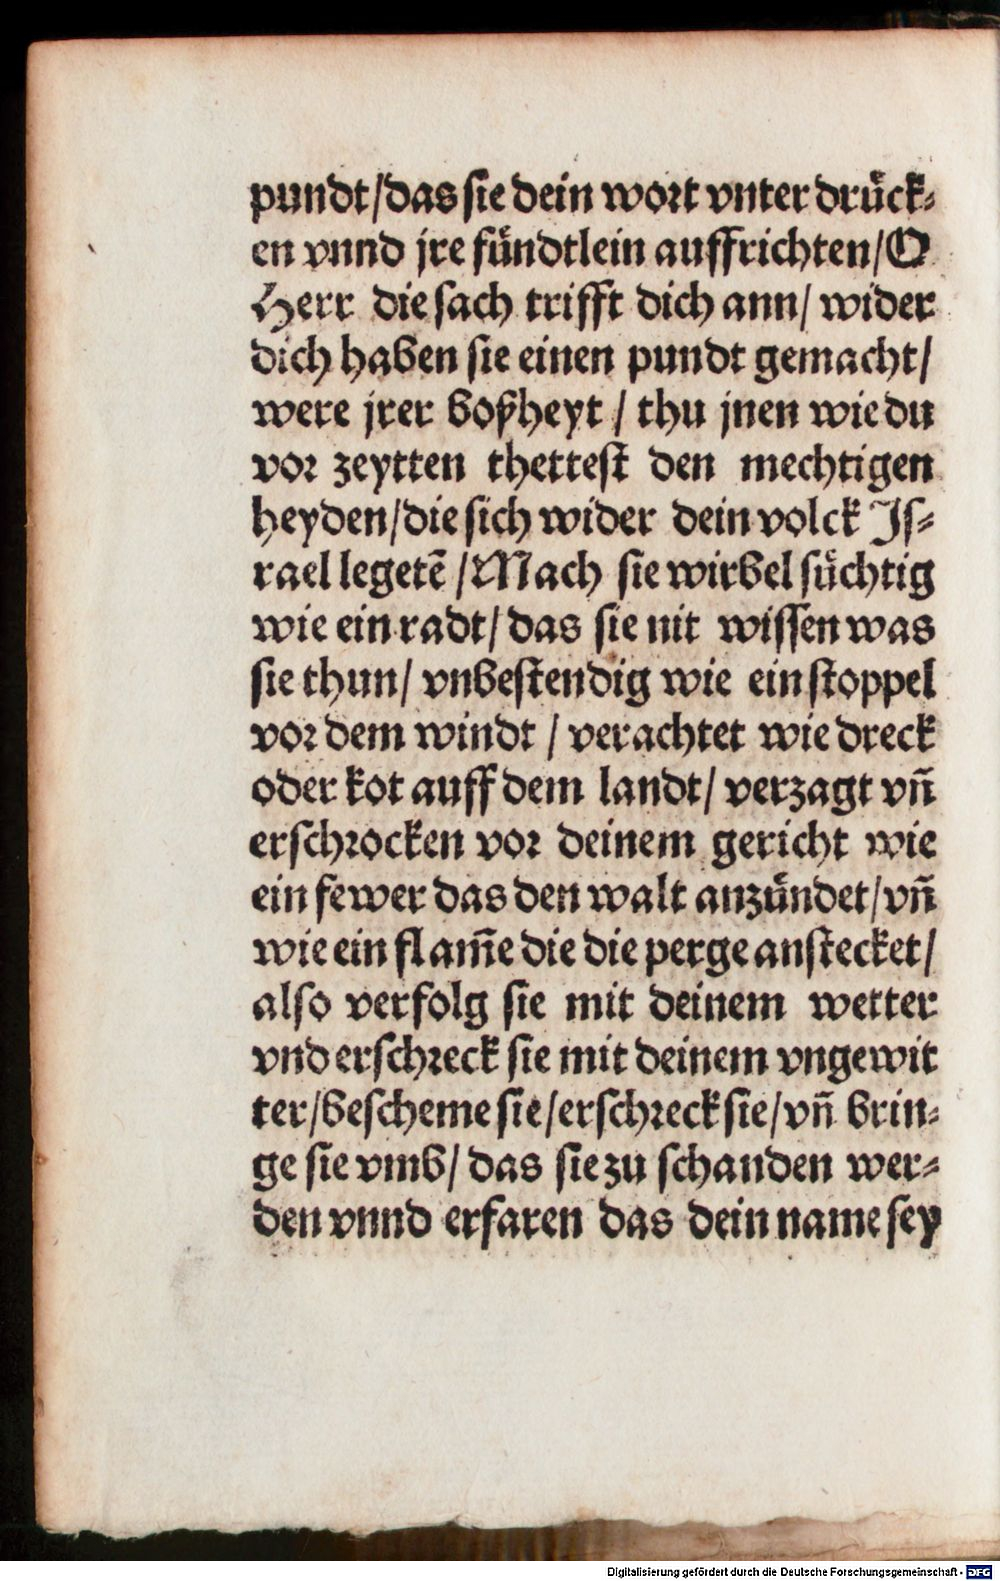 pundt/das sie dein wort vnter drück-
en vnnd jre fündtlein auffrichten/O
Herr die sach trifft dich ann/ wider
dich haben sie einen pundt gemacht/
were jrer boßheyt / thu jnen wie du
vor zeytten thettest den mechtigen
heyden/die sich wider dein volck Js-
rael legetē /Mach sie wirbel süchtig
wie ein radt/ das sie nit wissen was
sie thun/ vnbestendig wie ein stoppel
vor dem windt / verachtet wie dreck
oder kot auff dem landt/ verzagt vñ
erschrocken vor deinem gericht wie
ein fewer das den walt anzündet/vñ
wie ein flam̄e die die perge anstecket/
also verfolg sie mit deinem wetter
vnd erschreck sie mit deinem vngewit
ter/bescheme sie/erschreck sie/vñ brin-
ge sie vmb/ das sie zu schanden wer-
den vnnd erfaren das dein name sey
Digitalisierung gefördert durch die Deutsche Forschungsgemeinschaft - DFG